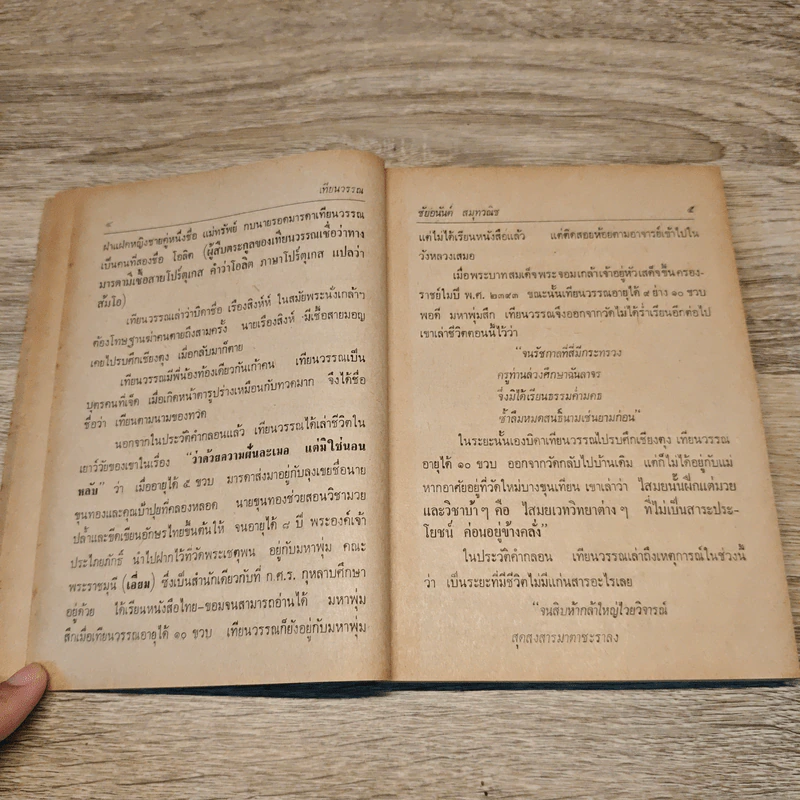 ๔
เทียนวรรณ
ฝาแฝดหญิงชายคู่หนึ่งชื่อ แม่ทรัพย์ กบนายรอดมารดาเทียนวรรณ
เป็นคนที่สองชื่อ โอลิด (ผู้สืบตระกูลของเทียนวรรณเชื่อว่าทาง
มารดามีเชื้อสายโปร์ตุเกส คำว่าโอลิด ภาษาโปร์ตุเกส แปลว่า
ส้มโอ)
เทียนวรรณเล่าว่าบิดาชื่อ เรืองสิงห์ห์ ในสมัยพระนั่งเกล้าฯ
ต้องโทษฐานฆ่าคนตายถึงสามครั้ง นายเรืองสิงห์ มีเชื้อสายมอญ
เคยไปรบศึกเชียงตุง เมื่อกลับมาก็ตาย
เทียนวรรณมีพี่น้องท้องเดียวกันเก้าคน เทียนวรรณเป็น
บุตรคนที่เจ็ด เมื่อเกิดหน้าตารูปร่างเหมือนกับทวดมาก จึงได้ชื่อ
ชื่อว่า เทียนตามนามของทวด
นอกจากในประวัติคำกลอนแล้ว เทียนวรรณได้เล่าชีวิตใน
เยาว์วัยของเขาในเรื่อง "ว่าด้วยความฝันละเมอ แต่มิใช่นอน
หลับ" ว่า เมื่ออายุได้ ๕ ขวบ มารดาส่งมาอยู่กับลุงเขยชื่อนาย
ขุนทองและคุณป้าปุยที่คลองหลอด นายขุนทองช่วยสอนวิชามวย
ปล้ำและขีดเขียนอักษรไทยขั้นต้นให้ จนอายุได้ ๘ ปี พระองค์เจ้า
ประไภยภักดิ์ นำไปฝากไว้ที่วัดพระเชตุพน อยู่กับมหาพุ่ม คณะ
พระราชมุนี (เอี่ยม) ซึ่งเป็นสำนักเดียวกับที่ ก.ศ.ร. กุหลาบศึกษา
อยู่ด้วย ได้เรียนหนังสือไทย-ขอมจนสามารถอ่านได้ มหาพุ่ม
สึกเมื่อเทียนวรรณอายุได้ ๑๐ ขวบ เทียนวรรณก็ยังอยู่กับมหาพุ่ม
ชัยอนันต์ สมุทวณิช
๕
แต่ไม่ได้เรียนหนังสือแล้ว แต่ติดสอยห้อยตามอาจารย์เข้าไปใน
วังหลวงเสมอ
เมื่อพระบาทสมเด็จพระจอมเกล้าเจ้าอยู่หัวเสด็จขึ้นครอง-
ราชย์ในปี พ.ศ. ๒๓๙๓ ขณะนั้นเทียนวรรณอายุได้ ๙ ย่าง ๑๐ ขวบ
พอดี มหาพุ่มสึก เทียนวรรณจึงออกจากวัดไม่ได้ร่ำเรียนอีกต่อไป
เขาเล่าชีวิตตอนนี้ไว้ว่า
"จนรัชกาลที่สี่มีกระทรวง
ครูท่านล่วงศึกษาฉันลาจร
จึ่งมิได้เรียนธรรมค่ำมคธ
ซ้ำลืมหมดสนธิ์นามเช่นยามก่อน"
ในระยะนั้นเองบิดาเทียนวรรณไปรบศึกเชียงตุง เทียนวรรณ
อายุได้ ๑๐ ขวบ ออกจากวัดกลับไปบ้านเดิม แต่ก็ไม่ได้อยู่กับแม่
หากอาศัยอยู่ที่วัดใหม่บางขุนเทียน เขาเล่าว่า ไสมยนั้นฝึกแต่มวย
และวิชาบ้าๆ คือ ไสมยเวทวิทยาต่างๆ ที่ไม่เป็นสาระประ-
โยชน์ ค่อนอยู่ข้างคลั่ง"
ในประวัติคำกลอน เทียนวรรณเล่าถึงเหตุการณ์ในช่วงนี้
ว่า เป็นระยะที่มีชีวิตไม่มีแก่นสารอะไรเลย
"จนสิบห้ากล้าใหญ่ไวยวิจารณ์
สุดสงสารมาดาชะราลง